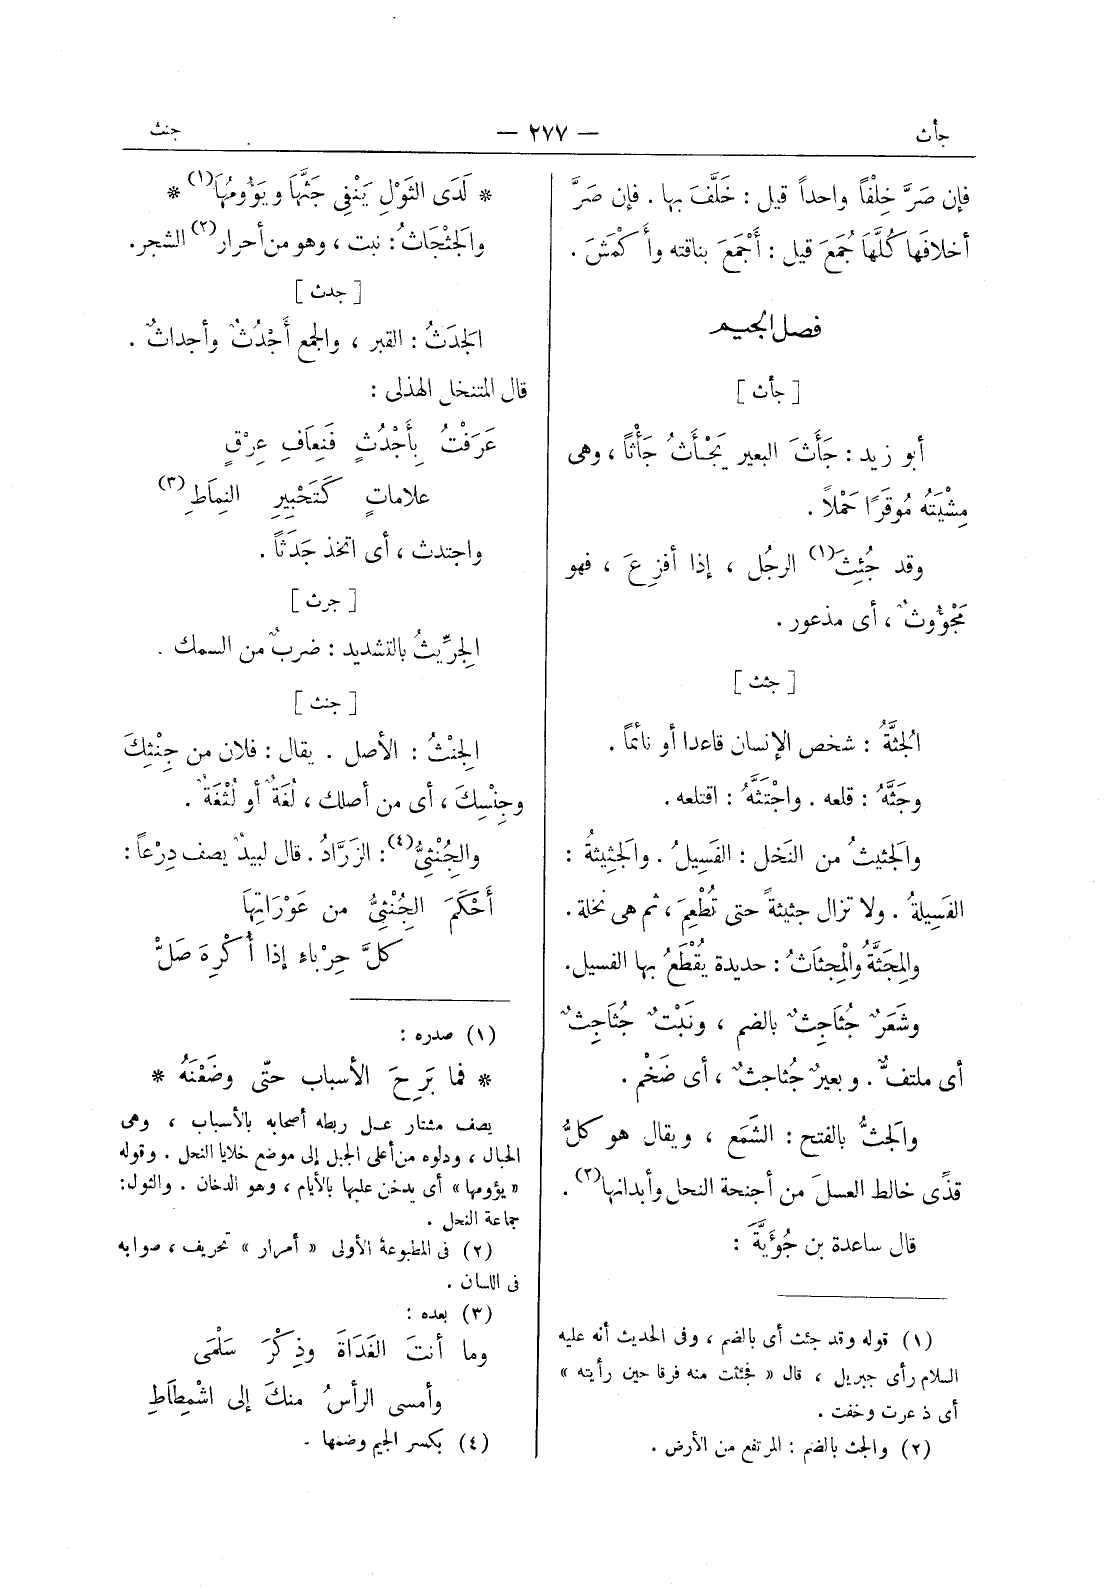 جأث
— ٢٧٧ —
جنث
فإن صَرَّ خِلْفاً واحداً قيل : خَلَّفَ بها . فإن صَرَّ
أخلافَها كُلَّها جُمَعَ قيل : أَجْمَعَ بناقته وأَكْمَشَ .
فصل الجيم
[ جأث ]
أبو زيد : جَأَثَ البعير يَجْأَثُ جَأْثاً ، وهى
مِشْيَتَهُ مُوقَرًا حَمْلاً .
وقد جُئِثَ(١) الرجُل ، إذا أفزِعَ ، فهو
مَجْؤُوثٌ ، أى مذعور .
[ جثث ]
الْجُثَّةُ : شخص الإنسان قاعدا أو نائماً .
وجَثَّهُ : قلعه . واجْتَثَّهُ : اقتلعه .
والجَثيثُ من النخل : الفَسِيلُ . والجَثِيثةُ :
الفَسِيلةُ . ولا تزال جثيثةً حتى تُطْعِمَ ، ثم هى نخلة .
والمِجَثَّةُ والْمِجثاثُ : حديدة يُقْطَعُ بها الفسيل .
وشَعَرٌ جُثَاجِثٌ بالضم ، ونَبْتٌ جُثَاجِثٌ
أى ملتفٌّ . وبعيرٌ جُثاجثٌ ، أى ضَخْم .
والجَثُّ بالفتح : الشَمَع ، ويقال هو كلُّ
قذًى خالط العسلَ من أجنحة النحل وأبدانها(٢) .
قال ساعدة بن جُؤَيَّةَ :
(١) قوله وقد جئث أى بالضم ، وفى الحديث أنه عليه
السلام رأى جبريل ، قال « فجئثت منه فرقا حين رأيته »
أى ذعرت وخفت .
(٢) والجث بالضم : المرتفع من الأرض .
* لَدَى الثَوْلِ يَنْفِى جَثَّهَا ويَؤُومُهَا(١) *
والجَثْجَاثُ : نبت ، وهو من أحرار(٢) الشجر .
[ جدث ]
الجَدَثُ : القبر ، والجمع أَجْدُثٌ وأجداثٌ .
قال المتنخل الهذلى :
عَرَفْتُ بِأَجْدُثٍ فَنِعَافِ عِرْقٍ
علاماتٍ كَتَحْبِيرِ النِمَاطِ(٣)
واجتدث ، أى اتخذ جَدَثاً .
[ جرث ]
الجِرِّيثُ بالتشديد : ضربٌ من السمك .
[ جنث ]
الجِنْثُ : الأصل . يقال : فلان من جِنْثِكَ
وجِنْسِكَ ، أى من أصلك ، لُغَةٌ أو لُثْغَةٌ .
والجِنُْثِىُّ(٤) : الزَرَّادُ . قال لبيدٌ يصف دِرْعاً :
أَحْكَمَ الجِنُْثِىُّ من عَوْرَاتِهَا
كلَّ حِرْباء إذا أُكْرِهَ صَلّْ
(١) صدره :
* فما بَرِحَ الأسباب حتّى وضَعْنَهُ *
يصف مشتار عسل ربطه أصحابه بالأسباب ، وهى
الحبال ، ودلوه من أعلى الجبل إلى موضع خلايا النحل . وقوله
« يؤومها » أى يدخن عليها بالأيام ، وهو الدخان . والثول :
جماعة النحل .
(٢) فى المطبوعة الأولى « أمرار » تحريف ، صوابه
فى اللسان .
(٣) بعده :
وما أنتَ الغَدَاةَ وذِكْرَ سَلْمَى
وأمسى الرأسُ منكَ إلى اشْمِطَاطِ
(٤) بكسر الجيم وضمها .